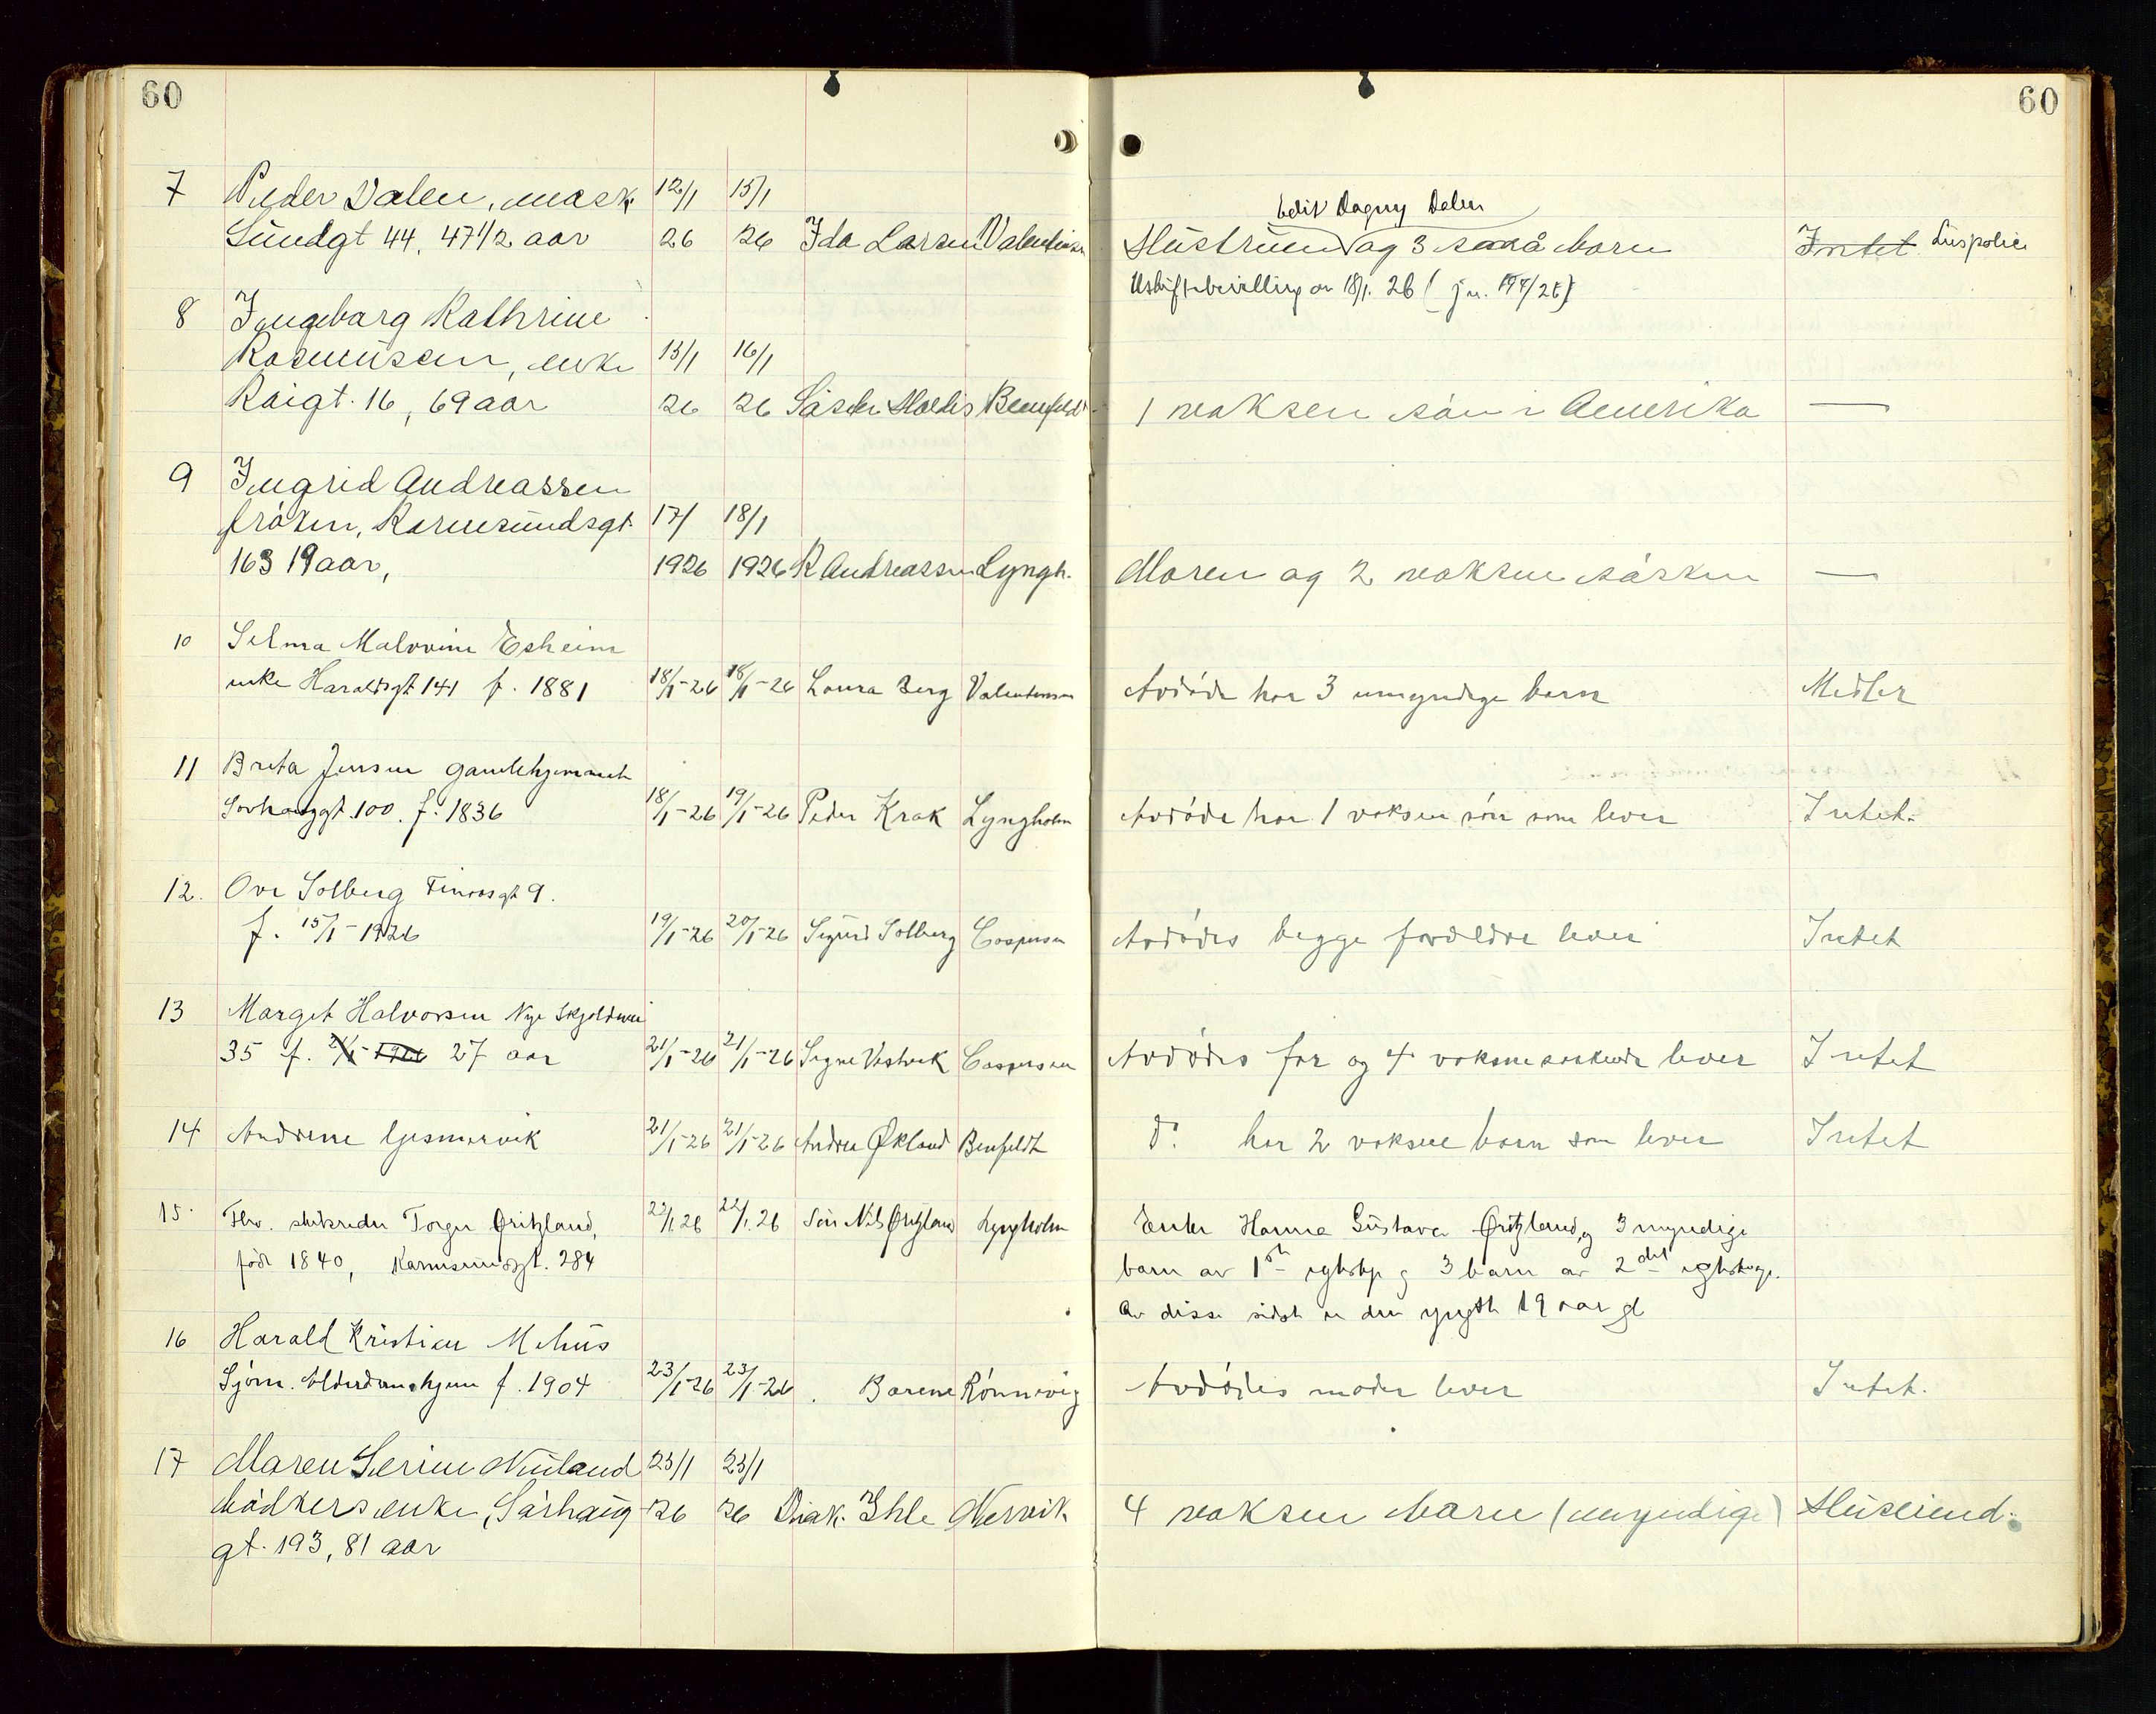 60
60
7 Peder Dalen, mask. 12/1 15/1
Edit Dagny Dalen
Sundgt 44, 47 1/2 aar 26 26 Ida Larsen Valentinsen Hustruen og 3 små born Intet Livspolice
Uskiftebevilling av 18/1. 26 (jn.
8 Ingeborg Kathrine
Rasmussen, enke 13/1 16/1
Raigt. 16, 69 aar 26 26 Søster Benfeldt 1 voksen søn i Amerika —
9 Ingrid Andreassen
frøken, Karmsundsgt. 17/ 18/1
163 19 aar, 1926 1926 R Andreassen Lyngh. Moren og 2 voksne søsken —
10 Selma Malvine Esheim
enke Haraldsgt 141 f. 1881 18/1-26 18/1-26 Laura Berg Valentinsen Avdøde har 3 umyndige born Midler
11 Brita Jensen gamlehjemmet
Sørhauggt. 100. f. 1836 18/1-26 19/1-26 Peder Krak Lyngholm Avdøde har 1 voksen søn som lever Intet.
12. Ove Solberg gt 9.
f. 15/1-1926 19/1-26 20/1-26 Sigurd Solberg Caspersen Avdødes begge forældre lever Intet
13 Marget Halvorsen Nye Skjoldavei
35 f. 27 aar 21/1-26 21/1-26 Signe Vestvik Caspersen Avdødes far og 4 voksne søskende lever Intet
14 Andrine Gjesmervik 21/1-26 21/1-26 Andrea Økland Benfeldt do har 2 voksne born som lever Intet
15. Fhv. skibsreder Torger Øritzland, 22/1.26 22/1.26 Søn Nils Øritzland Lyngholm Enken Hanna Gustava Øritzland, og 3 myndige
født 1840, Karmsundsgt. 284 barn av 1ste egtskp og 3 barn av 2det egtskap.
Av disse sidste er den yngste 19 aar gl
16 Harald Kristian Mehus
Sjøm. Alderdomshjem f. 1904 23/1-26 23/1-26 . Borene Rønnevig Avdødes moder lever Intet.
17 Maren Serine Nuland 23/1 23/1
bødkersenke, Sørhaug- 26 26 Diak. Ihle Nervik 4 voksne born (myndige) Huseiend.
gt. 193, 81 aar